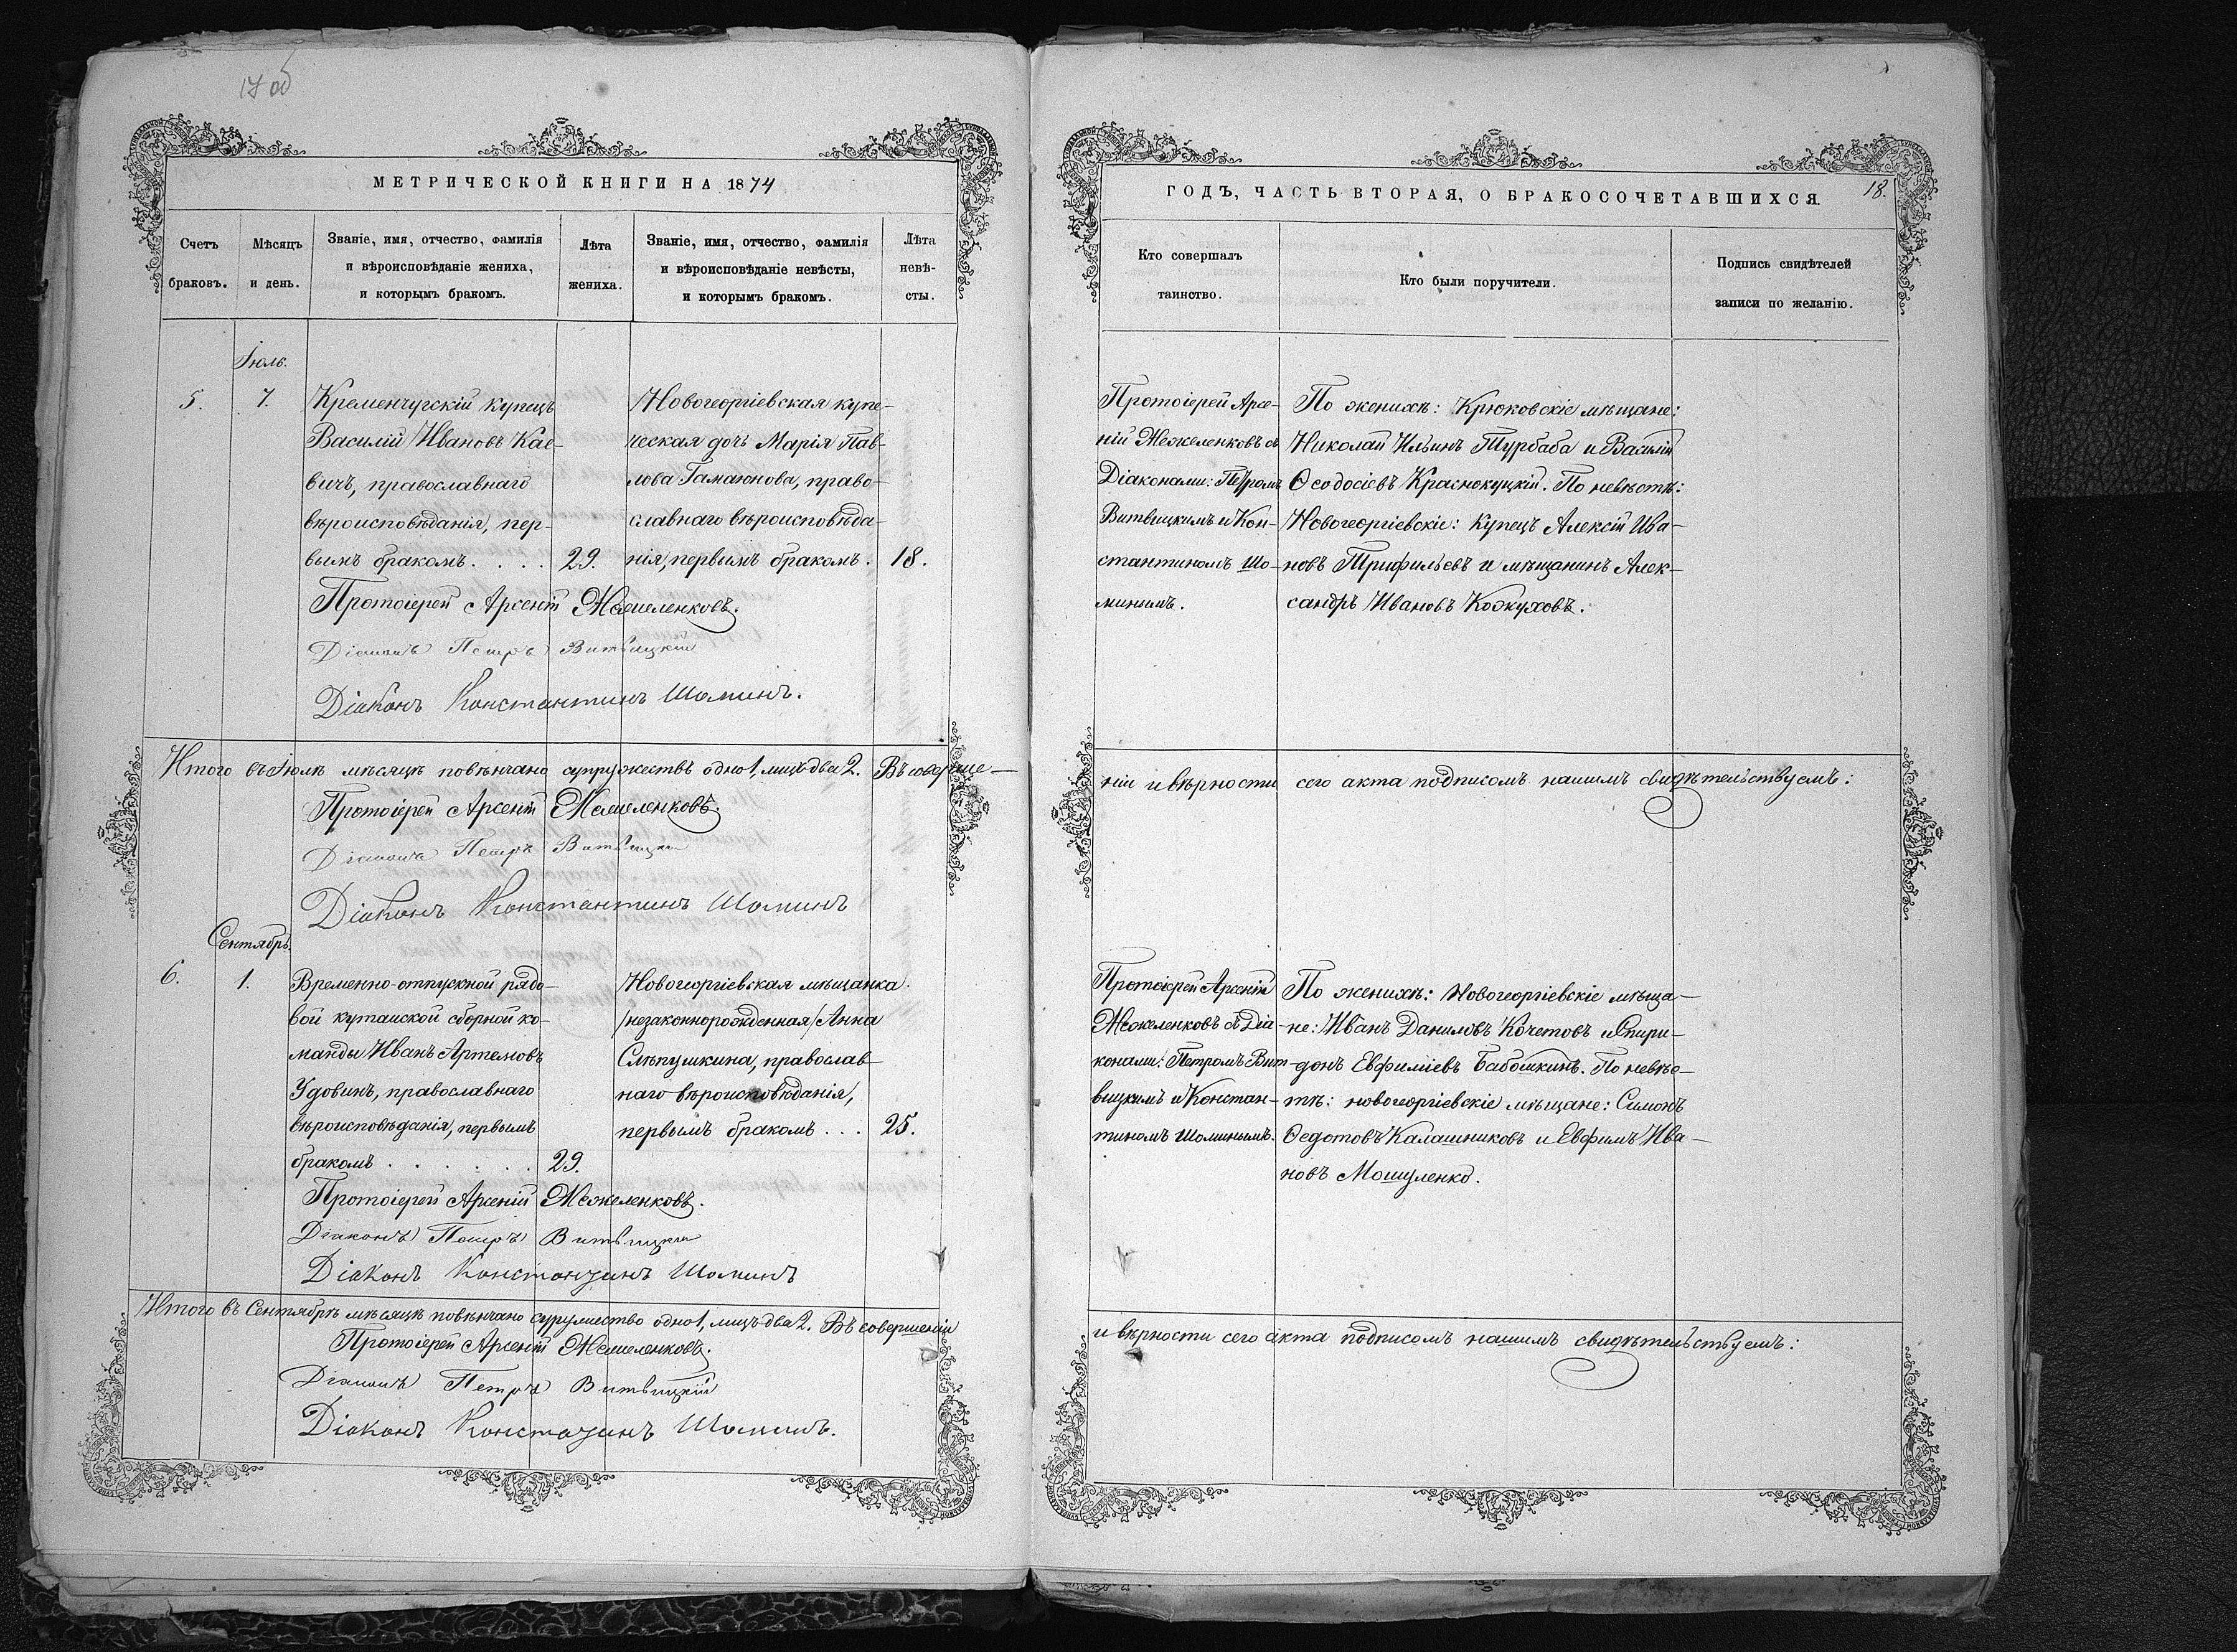 17 об
МЕТРИЧЕСКОЙ КНИГИ НА 1874
Счетъ
браковъ.
Мѣсяцъ
и день.
Званіе, имя, отчество, фамилія
и вѣроисповѣданіе жениха,
и которымъ бракомъ.
Лѣта
жениха.
Званіе, имя, отчество, фамилія
и вѣроисповѣданіе невѣсты,
и которымъ бракомъ.
Лѣта
невѣ-
сты.
Іюль.
5.
7.
Кременчугскій купецъ
Василій Ивановъ Кае-
вичъ, православнаго
вѣроисповѣданія, пер-
вымъ бракомъ. . . .
29.
Новогеоргіевская купе-
ческая дочь Марія Пав-
лова Гамаюнова, право-
славнаго вѣроисповѣда-
нія, первымъ бракомъ.
18.
Протоіерей Арсеній Межеленковъ.
Діаконъ Петръ Витвицкій
Діаконъ Константинъ Шоминъ.
Итого въ Іюлѣ мѣсяцѣ повѣнчано супружествъ одно 1, лицъ два 2. Въ соверше-
Протоіерей Арсеній Межеленковъ.
Діаконъ Петръ Витвицкій
Діаконъ Константинъ Шоминъ
Сентябрь.
6.
1.
Временно-отпускной рядо-
вой кутаиской сборной ко-
манды Иванъ Артемовъ
Удовинъ, православнаго
вѣроисповѣданія, первымъ
бракомъ . . . . . .
29.
Новогеоргіевская мѣщанка
/незаконнорожденная/ Анна
Слѣпушкина, православ-
наго вѣроисповѣданія,
первымъ бракомъ . . .
25.
Протоіерей Арсеній Межеленковъ.
Діаконъ Петръ Витвицкій
Діаконъ Константинъ Шоминъ
Итого въ Сентябрѣ мѣсяцѣ повѣнчано супружество одно 1, лицъ два 2. Въ совершеніи
Протоіерей Арсеній Межеленковъ.
Діаконъ Петръ Витвицкій
Діаконъ Константинъ Шоминъ.
ГОДЪ, ЧАСТЬ ВТОРАЯ, О БРАКОСОЧЕТАВШИХСЯ.
18.
Кто совершалъ
таинство.
Кто были поручители.
Подпись свидѣтелей
записи по желанію.
Протоіерей Арсе-
ній Межеленковъ съ
Діаконами: Петромъ
Витвицкимъ и Кон-
стантиномъ Шо-
минымъ.
По женихѣ: Крюковскіе мѣщане:
Николай Ильинъ Турбаба и Василій
Ѳеодосіевъ Краснокуцкій. По невѣстѣ:
Новогеоргіевскіе: купецъ Алексій Ива-
новъ Трифильевъ и мѣщанинъ Алек-
сандръ Ивановъ Кожуховъ.
ніи и вѣрности сего акта подписомъ нашимъ свидѣтельствуемъ:
Протоіерей Арсеній
Межеленковъ съ Діа-
конами: Петромъ Вит-
вицкимъ и Констан-
тиномъ Шоминымъ.
По женихѣ: Новогеоргіевскіе мѣща-
не: Иванъ Даниловъ Кочетовъ и Спири-
донъ Евфиміевъ Бабошкинъ. По невѣс-
тѣ: новогеоргіевскіе мѣщане: Симонъ
Ѳедотовъ Калашниковъ и Евфимъ Ива-
новъ Мошуленко.
и вѣрности сего акта подписомъ нашимъ свидѣтельствуемъ: